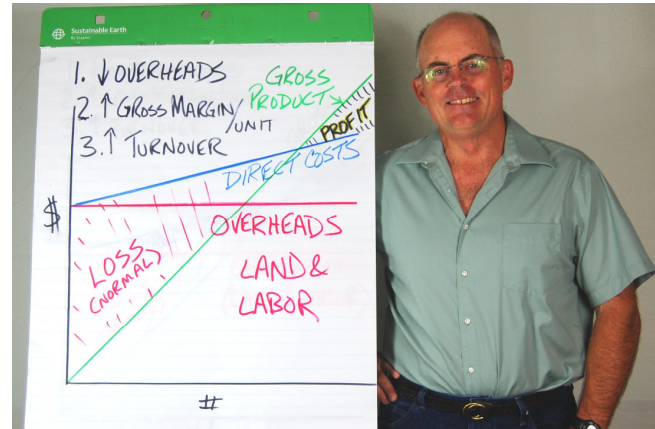 Sustainable Earth
By Staples
1. ↓ OVERHEADS
2. ↑ GROSS MARGIN/
UNIT
3. ↑ TURNOVER
GROSS
PRODUCT
PROFIT
DIRECT COSTS
$
OVERHEADS
LAND &
LABOR
LOSS
(NORMAL)
#